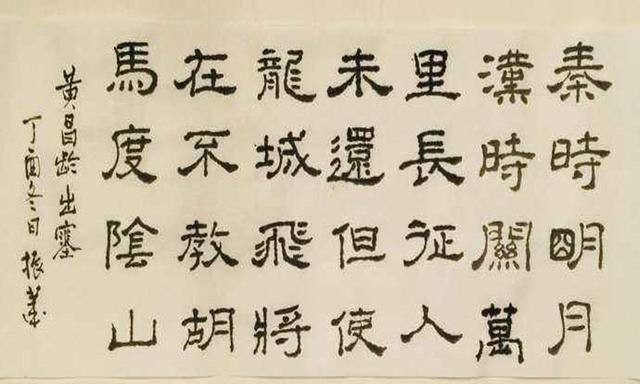 秦時明月
漢時關萬
里長征人
未還但使
龍城飛將
在不教胡
馬度陰山
黃昌齡出塞
丁酉冬日振